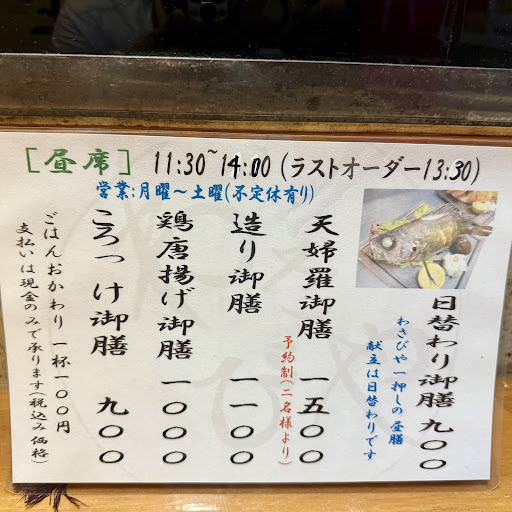 ［昼席］ 11:30~14:00（ラストオーダー13:30）
営業:月曜～土曜(不定休有り)
日替わり御膳 九〇〇
わさびや一押しの昼膳
献立は日替わりです
天婦羅御膳 一五〇〇
予約制(二名様より)
造り御膳 一一〇〇
鶏唐揚げ御膳 一〇〇〇
ころっけ御膳 九〇〇
ごはんおかわり 一杯一〇〇円
支払いは現金のみで承ります(税込み価格)